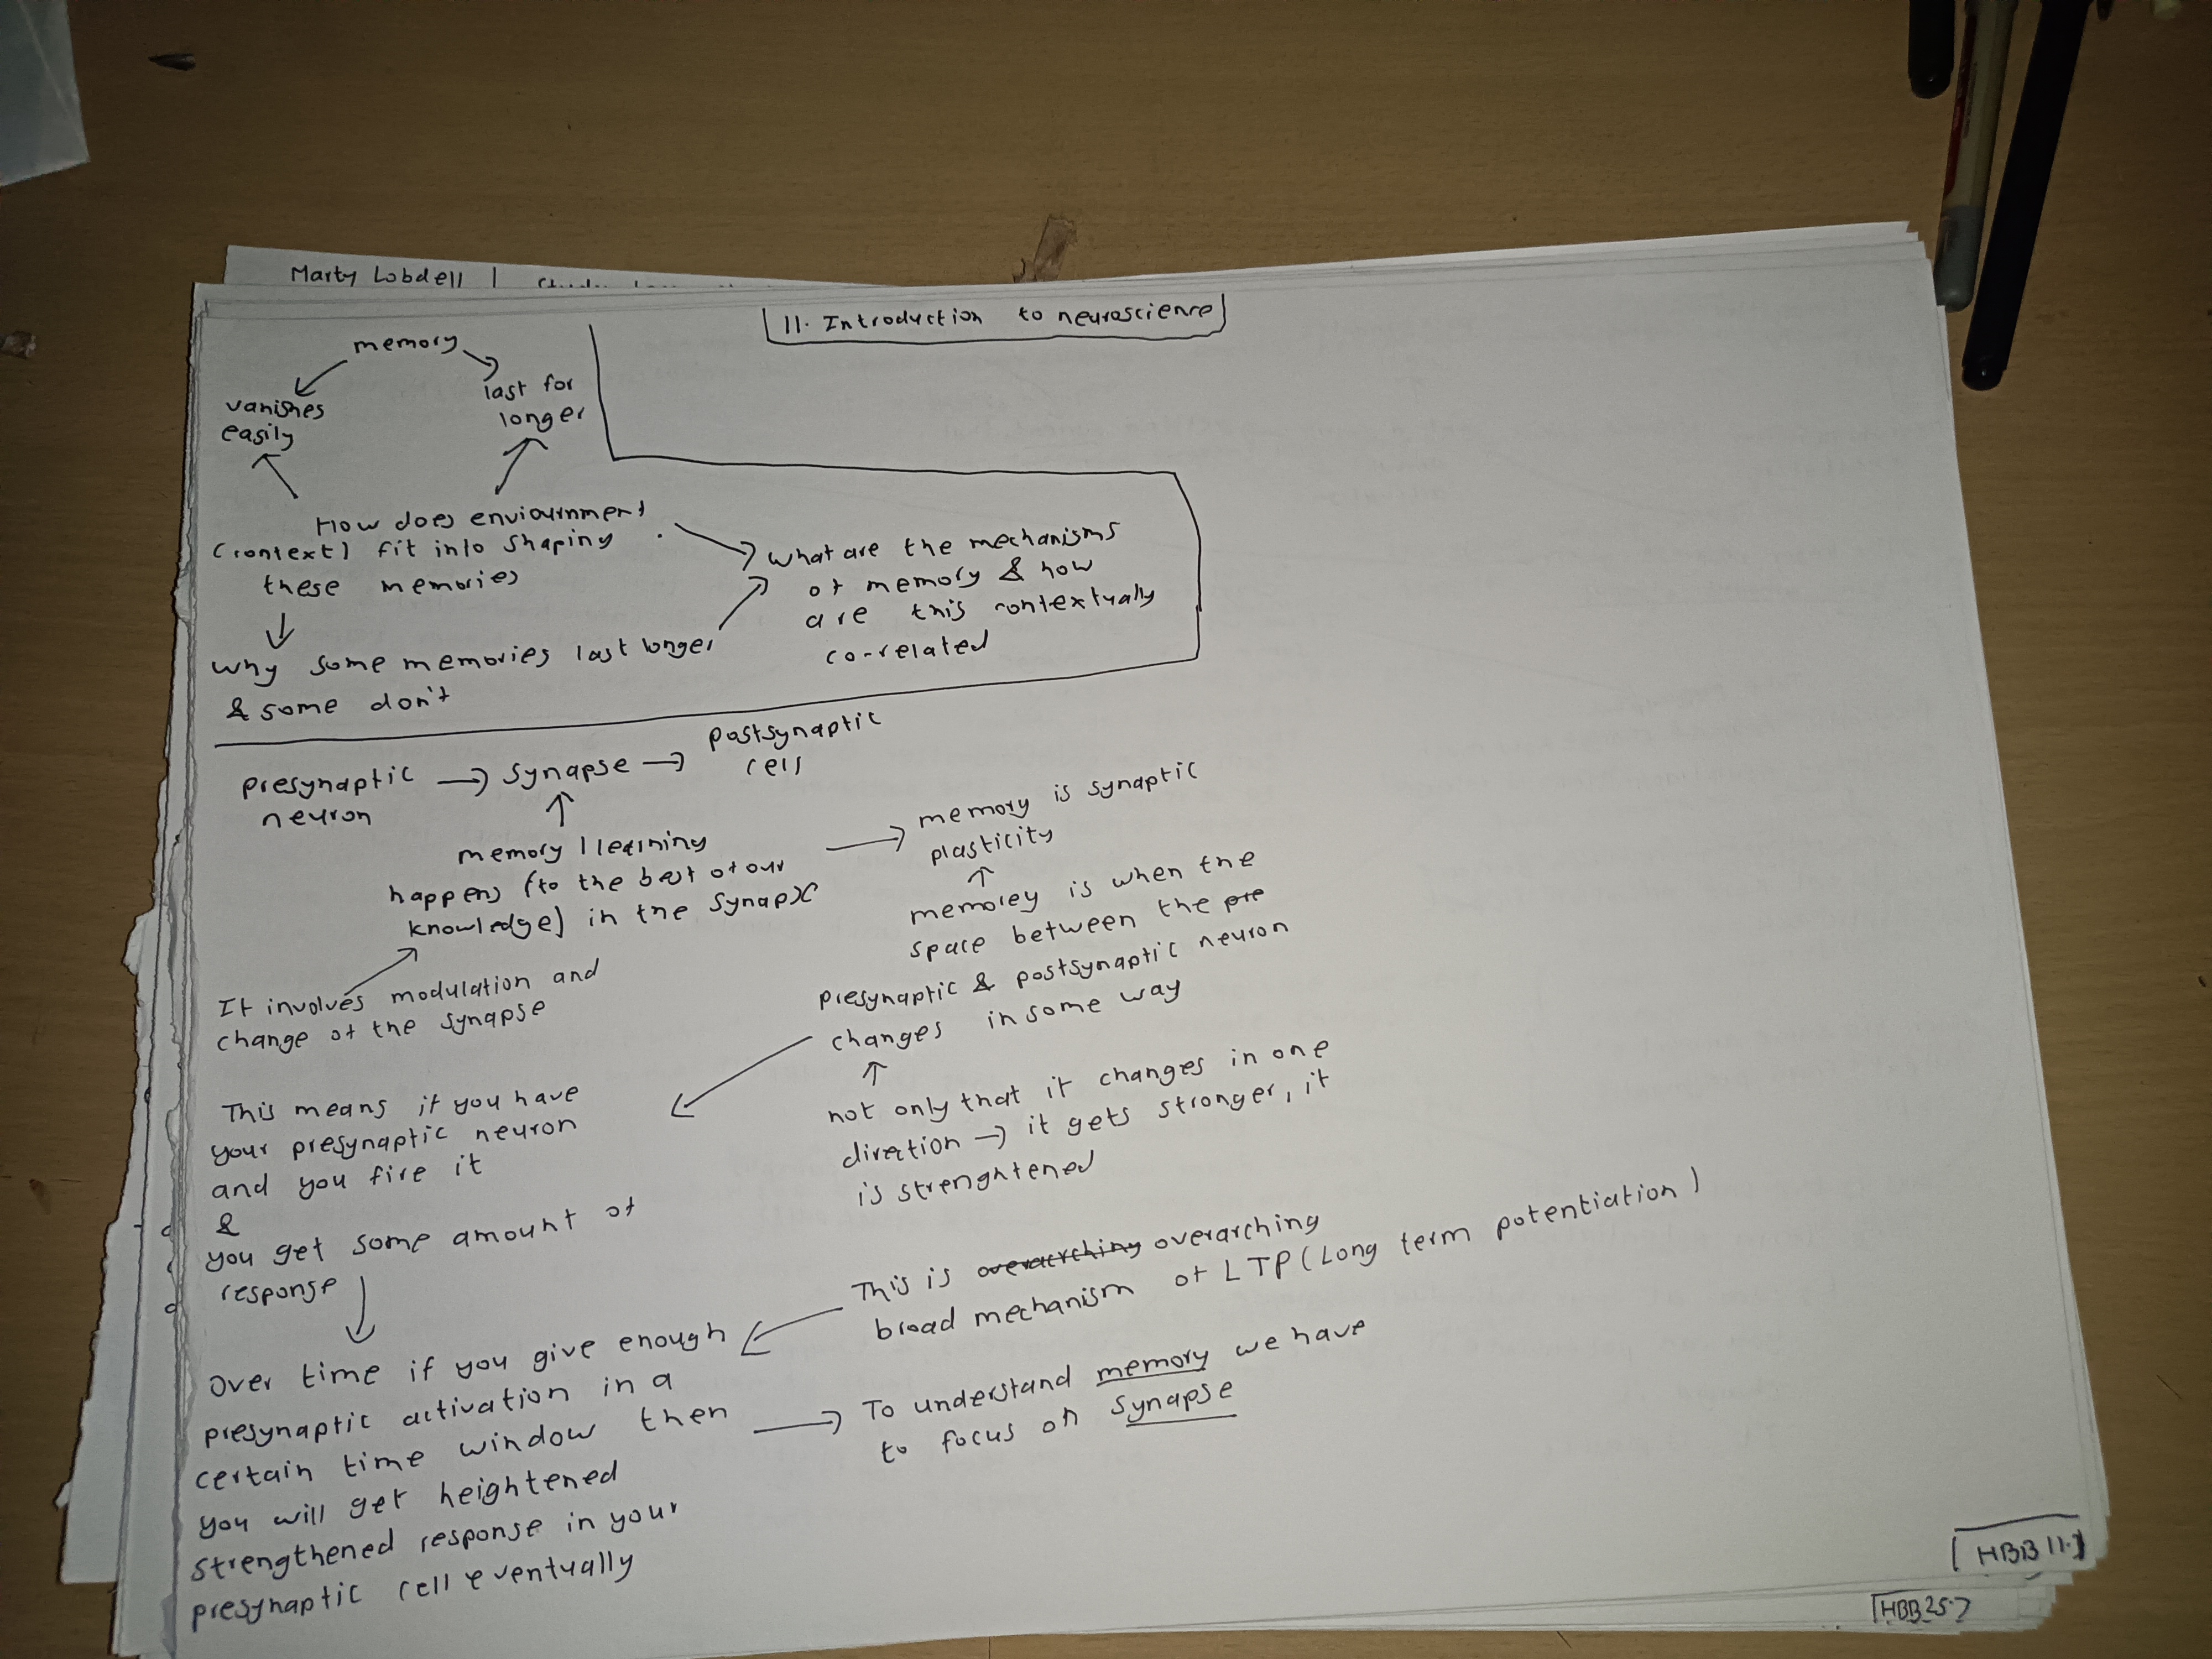 Marty Lobdell |
11. Introduction to neuroscience
memory
vanishes
easily
last for
longer
How does enviournment
(context) fit into shaping
these memories
why some memories last longer
& some don't
what are the mechanisms
of memory & how
are this contextually
co-related
presynaptic
neuron
→ synapse →
postsynaptic
cell
memory | learning
happens (to the best of our
knowledge) in the synapse
It involves modulation and
change of the synapse
memory is synaptic
plasticity
memorey is when the
space between the pre
presynaptic & postsynaptic neuron
changes in some way
not only that it changes in one
direction → it gets stronger, it
is strenghtened
This means if you have
your presynaptic neuron
and you fire it
&
you get some amount of
response
Over time if you give enough
presynaptic activation in a
certain time window then
you will get heightened
strengthened response in your
presynaptic cell eventually
This is overarching overarching
broad mechanism of LTP (Long term potentiation)
To understand memory we have
to focus on synapse
HBB 11.1
HBB 25.7